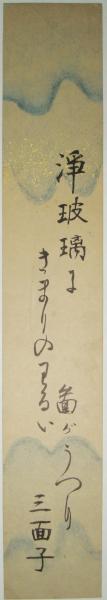 淨玻璃に
きまりのわるい
啚がうつり
三面子